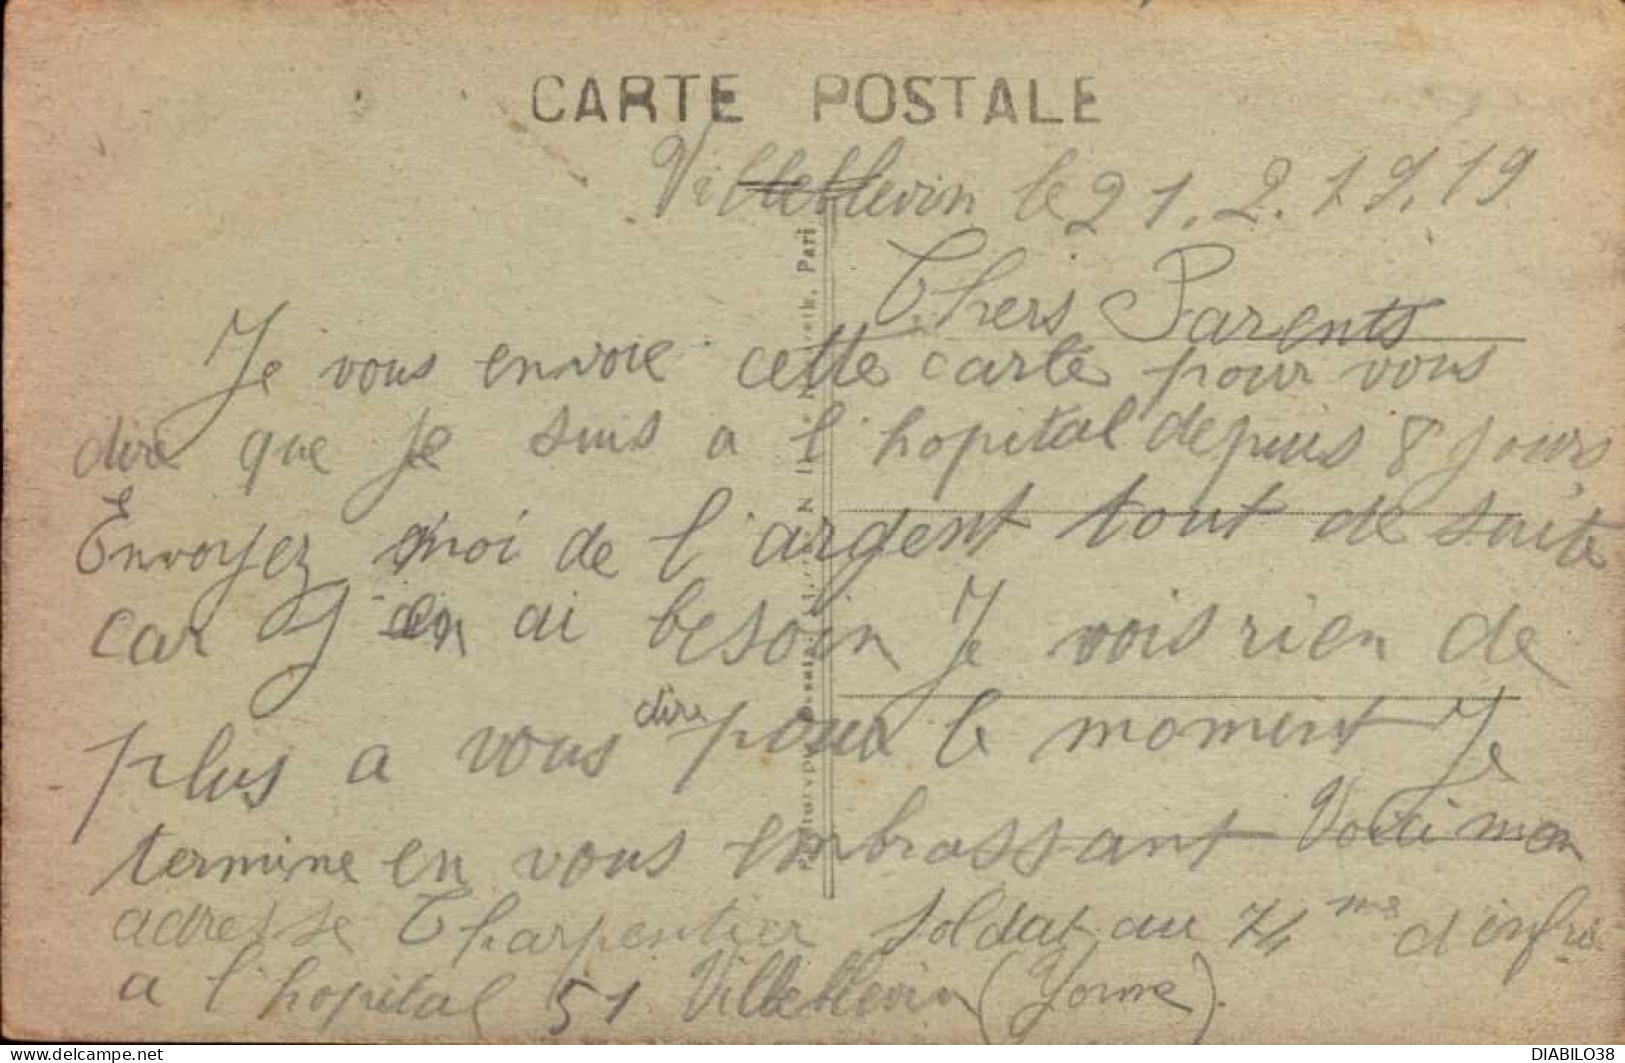 CARTE POSTALE
Villeblevin le 21.2.19.19
Chers Parents
Je vous envoie cette carte pour vous
dire que je suis a l'hopital depuis 8 jours
Envoyez moi de l'argent tout de suite
car J en ai besoin Je vois rien de
plus a vous dire pour le moment Je
termine en vous embrassant Voici mon
adresse Charpentier soldat au 74me d'infrie
a l'hopital 51 Villeblevin (Yonne).
Paris
delcampe.net
DIABILO38